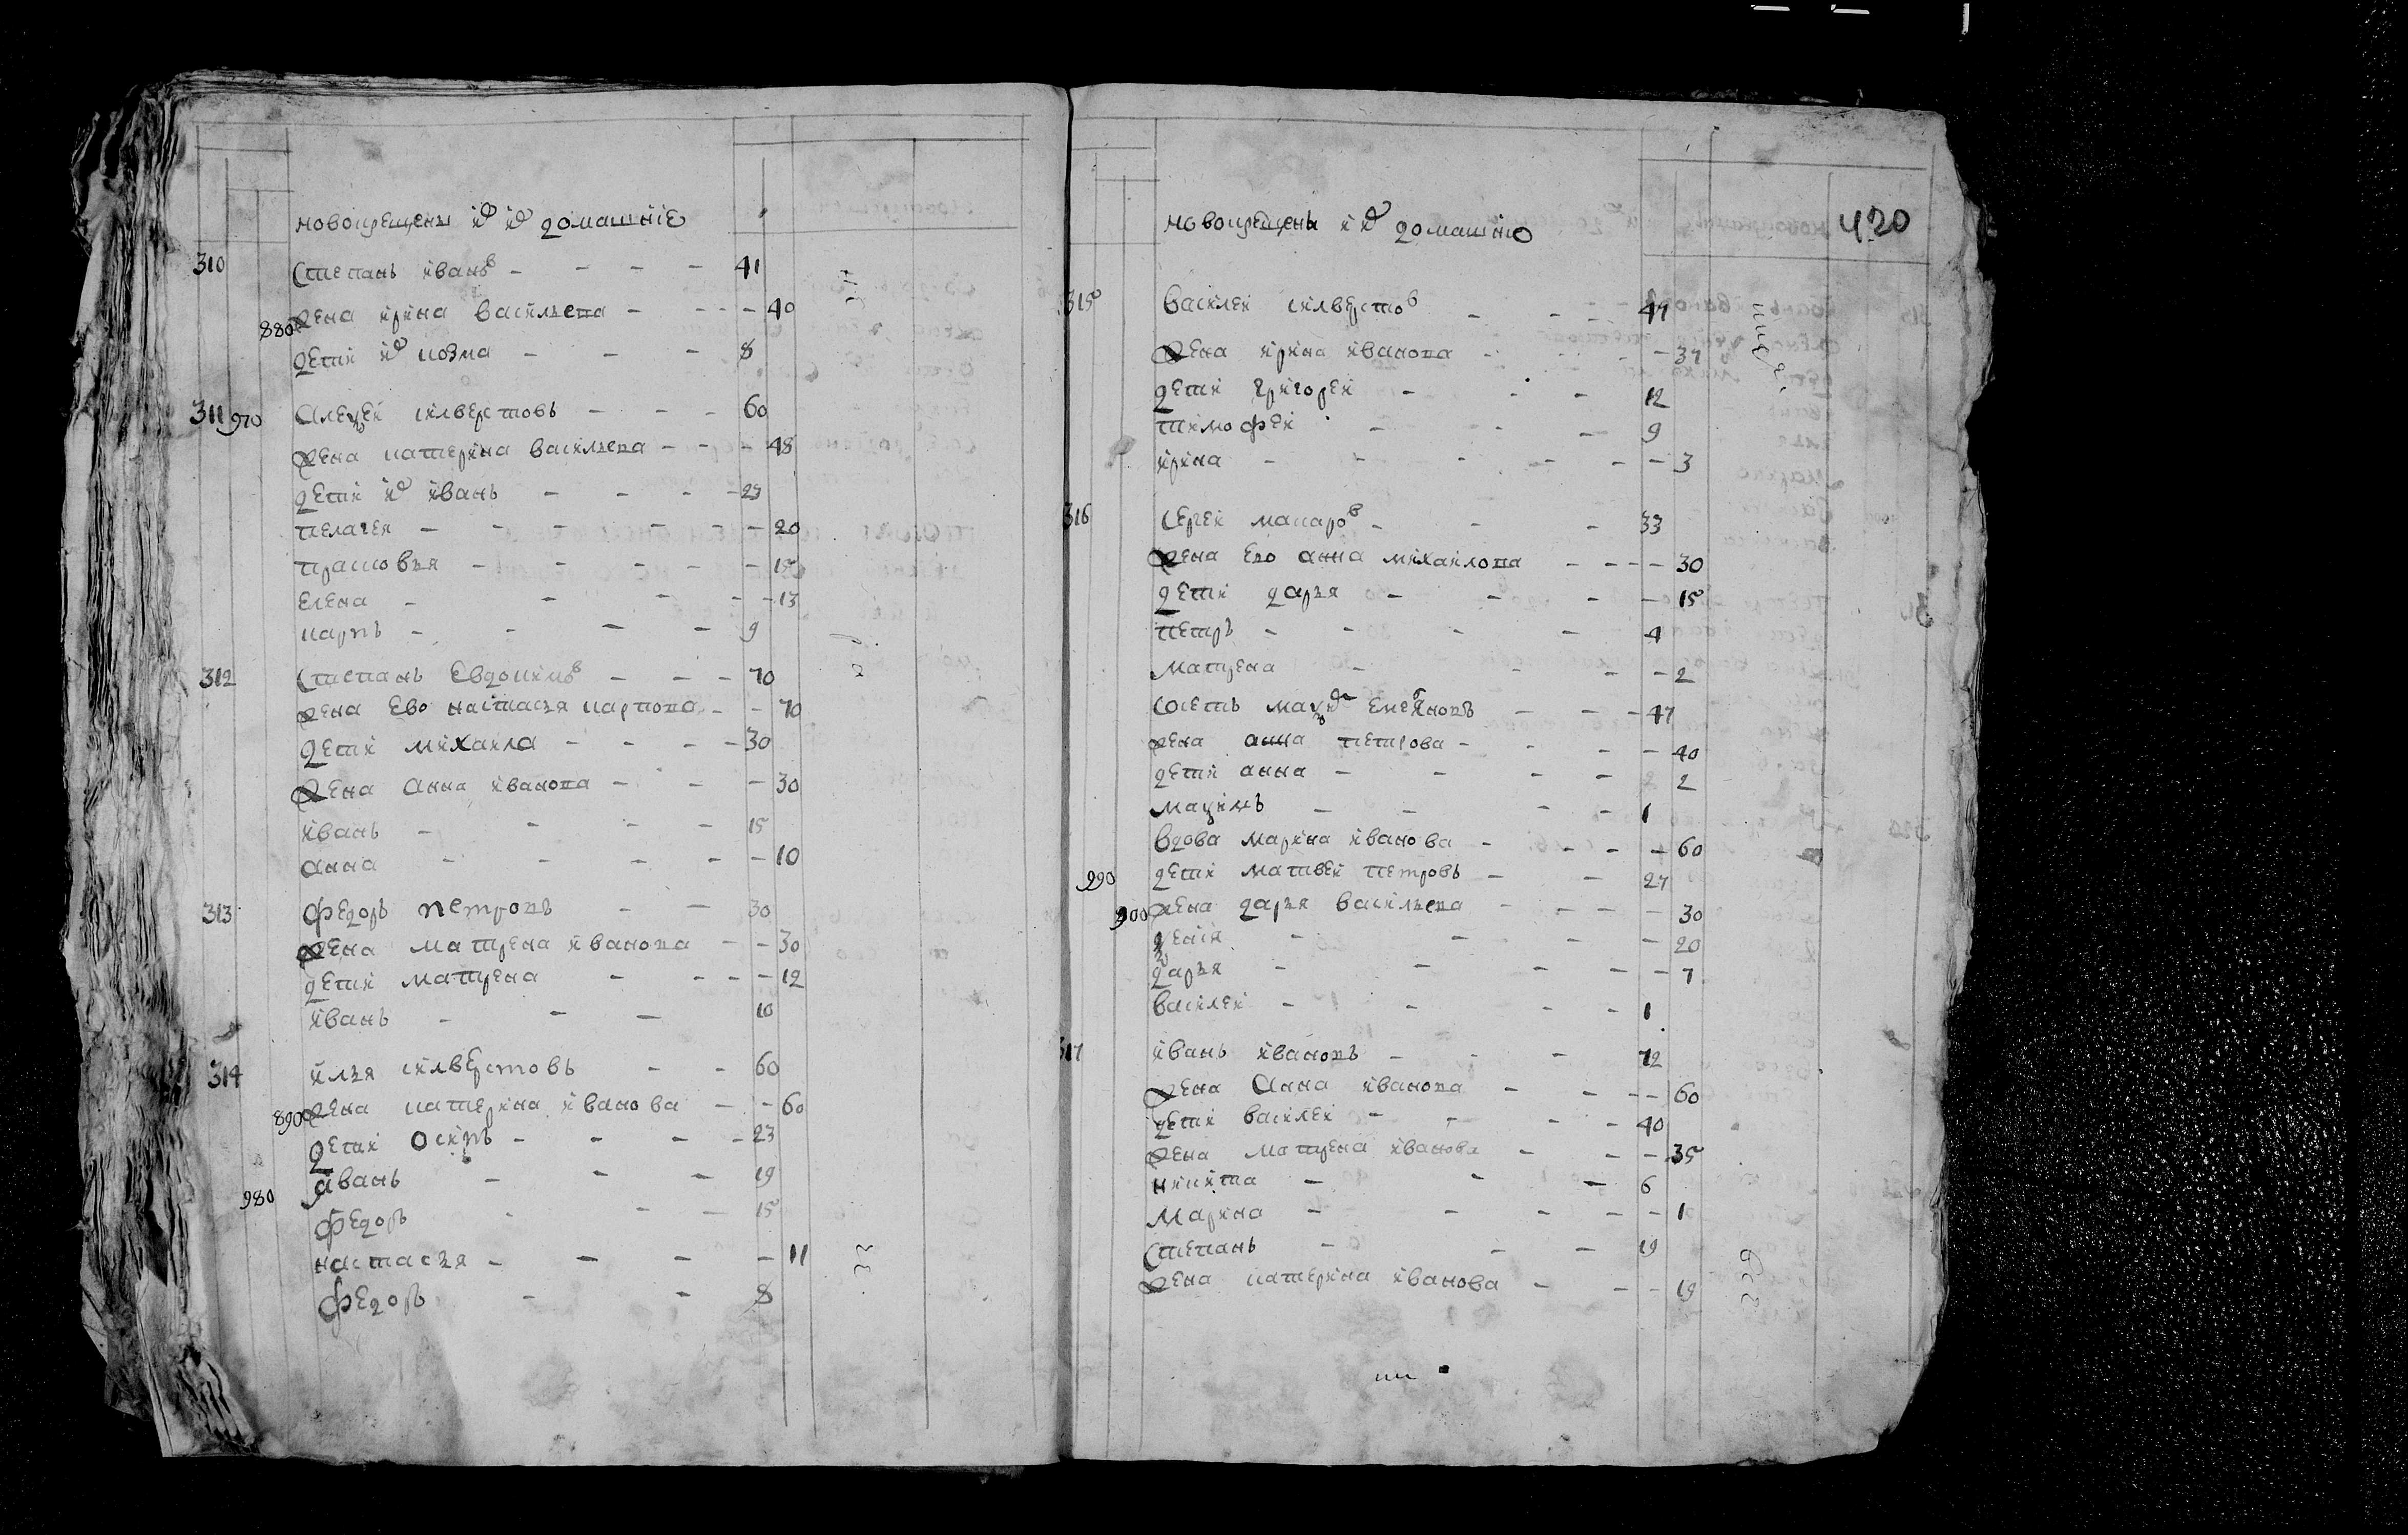 новокрещены и их домашние
310 Степанъ Ивановъ - - - - 41
жена Ирина Васильева - - - - 40
880
дети их Козма - - - 8
311 970 Алеѯей Силверстовъ - - - 60
жена Катерина Васильева - - - 48
дети их Иванъ - - - - 23
Пелагея - - - - - - 20
Прасковья - - - - - - 15
Елена - - - - - 13
Карпъ - - - - 9
312 Степанъ Евдокимовъ - - - 70
жена Ево Настасья Карпова - - 70
дети Михаила - - - - 30
жена Анна Иванова - - - 30
Иванъ - - - - 15
Анна - - - - - 10
313 Федоръ Петровъ - - 30
жена Матрена Иванова - - 30
дети Матрена - - - - 12
Иванъ - - - 10
314 Илья Силверстовъ - - 60
890 жена Катерина Иванова - - 60
дети Осипъ - - - - 23
Иванъ - - - 19
980
Федоръ - - - 15
Настасья - - - - 11
Федоръ - - 8
новокрещены и их домашние
420
315 Василей Силверстовъ - - - 47
жена Ирина Иванова - - - - 37
дети Григорей - - - 12
Тимофей - - 9
Ирина - - - - - - 3
316 Сергей Макаровъ - - - 33
жена Ево Анна Михаилова - - - - 30
дети Дарья - - - - 15
Петръ - - - - 4
Матрена - - - - 2
47
жена Анна Петрова - - - - 40
дети Анна - - - - 2
Маѯимъ - - - - 1
вдова Марина Иванова - - - - - 60
990 дети Матвей Петровъ - - 27
900 жена Дарья Васильева - - - - 30
- - - - 20
Дарья - - - - - 7
Василей - - - - 1
317 Иванъ Ивановъ - - - 72
жена Анна Иванова - - - - 60
дети Василей - - - - 40
жена Матрена Иванова - - - 35
Никита - - - 6
Марина - - - - - 1
Степанъ - - - 19
жена Катерина Иванова - - - 19